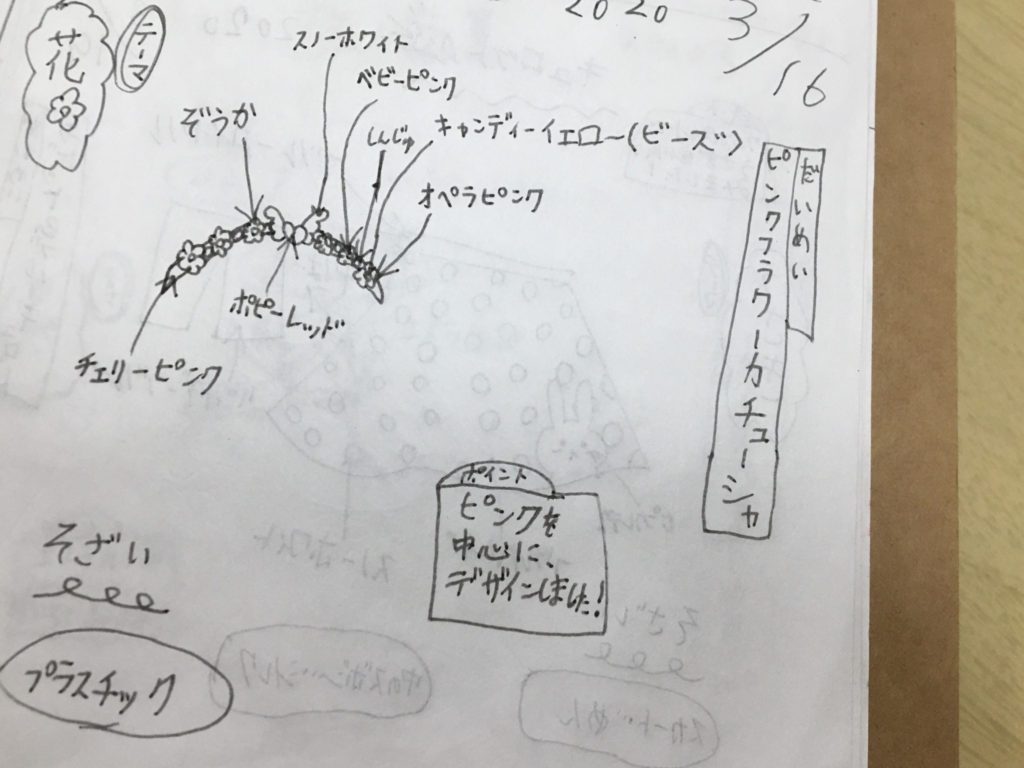 2020
3/16
テーマ
花
スノーホワイト
ベビーピンク
ぞうか
しんじゅ
キャンディーイエロー(ビーズ)
オペラピンク
ポピーレッド
チェリーピンク
だいめい
ピンクフラワーカチューシャ
ポイント
ピンクを
中心に、
デザインしました!
そざい
プラスチック